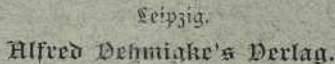 Leipzig.
Alfred Oehmigke's Verlag.